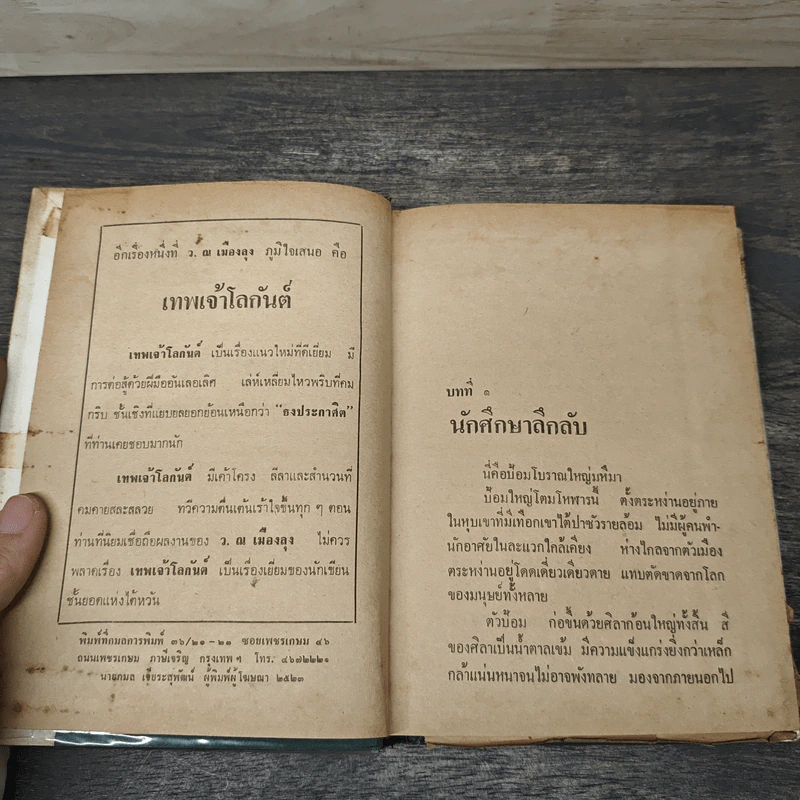 อีกเรื่องหนึ่งที่ ว. ณ เมืองลุง ภูมิใจเสนอ คือ
เทพเจ้าโลกันต์
เทพเจ้าโลกันต์ เป็นเรื่องแนวใหม่ที่ดีเยี่ยม มี
การต่อสู้ด้วยฝีมืออันเลอเลิศ เล่ห์เหลี่ยมไหวพริบที่คม
กริบ ชั้นเชิงที่แยบยลยอกย้อนเหนือกว่า “ธงประกาศิต”
ที่ท่านเคยชอบมากนัก
เทพเจ้าโลกันต์ มีเค้าโครง ลีลาและสำนวนที่
คมคายสละสลวย ทวีความตื่นเต้นเร้าใจขึ้นทุก ๆ ตอน
ท่านที่นิยมเชื่อถือผลงานของ ว. ณ เมืองลุง ไม่ควร
พลาดเรื่อง เทพเจ้าโลกันต์ เป็นเรื่องเยี่ยมของนักเขียน
ชั้นยอดแห่งไต้หวัน
พิมพ์ที่กมลการพิมพ์ ๓๖/๒๑ – ๒๑ ซอยเพชรเกษม ๔๖
ถนนเพชรเกษม ภาษีเจริญ กรุงเทพ ฯ โทร. ๔๖๗๒๒๒๑
นายกมล เจียระสุพัฒน์ ผู้พิมพ์ผู้โฆษณา ๒๕๒๓
บทที่ ๑
นักศึกษาลึกลับ
นี่คือป้อมโบราณใหญ่มหึมา
ป้อมใหญ่โตมโหฬารนี้ ตั้งตระหง่านอยู่ภาย
ในหุบเขาที่มีเทือกเขาไต้ปาซัวรายล้อม ไม่มีผู้คนพำ-
นักอาศัยในละแวกใกล้เคียง ห่างไกลจากตัวเมือง
ตระหง่านอยู่โดดเดี่ยวเดียวดาย แทบตัดขาดจากโลก
ของมนุษย์ทั้งหลาย
ตัวป้อม ก่อขึ้นด้วยศิลาก้อนใหญ่ทั้งสิ้น สี
ของศิลาเป็นน้ำตาลเข้ม มีความแข็งแกร่งยิ่งกว่าเหล็ก
กล้าแน่นหนาจนไม่อาจพังทลาย มองจากภายนอกไป